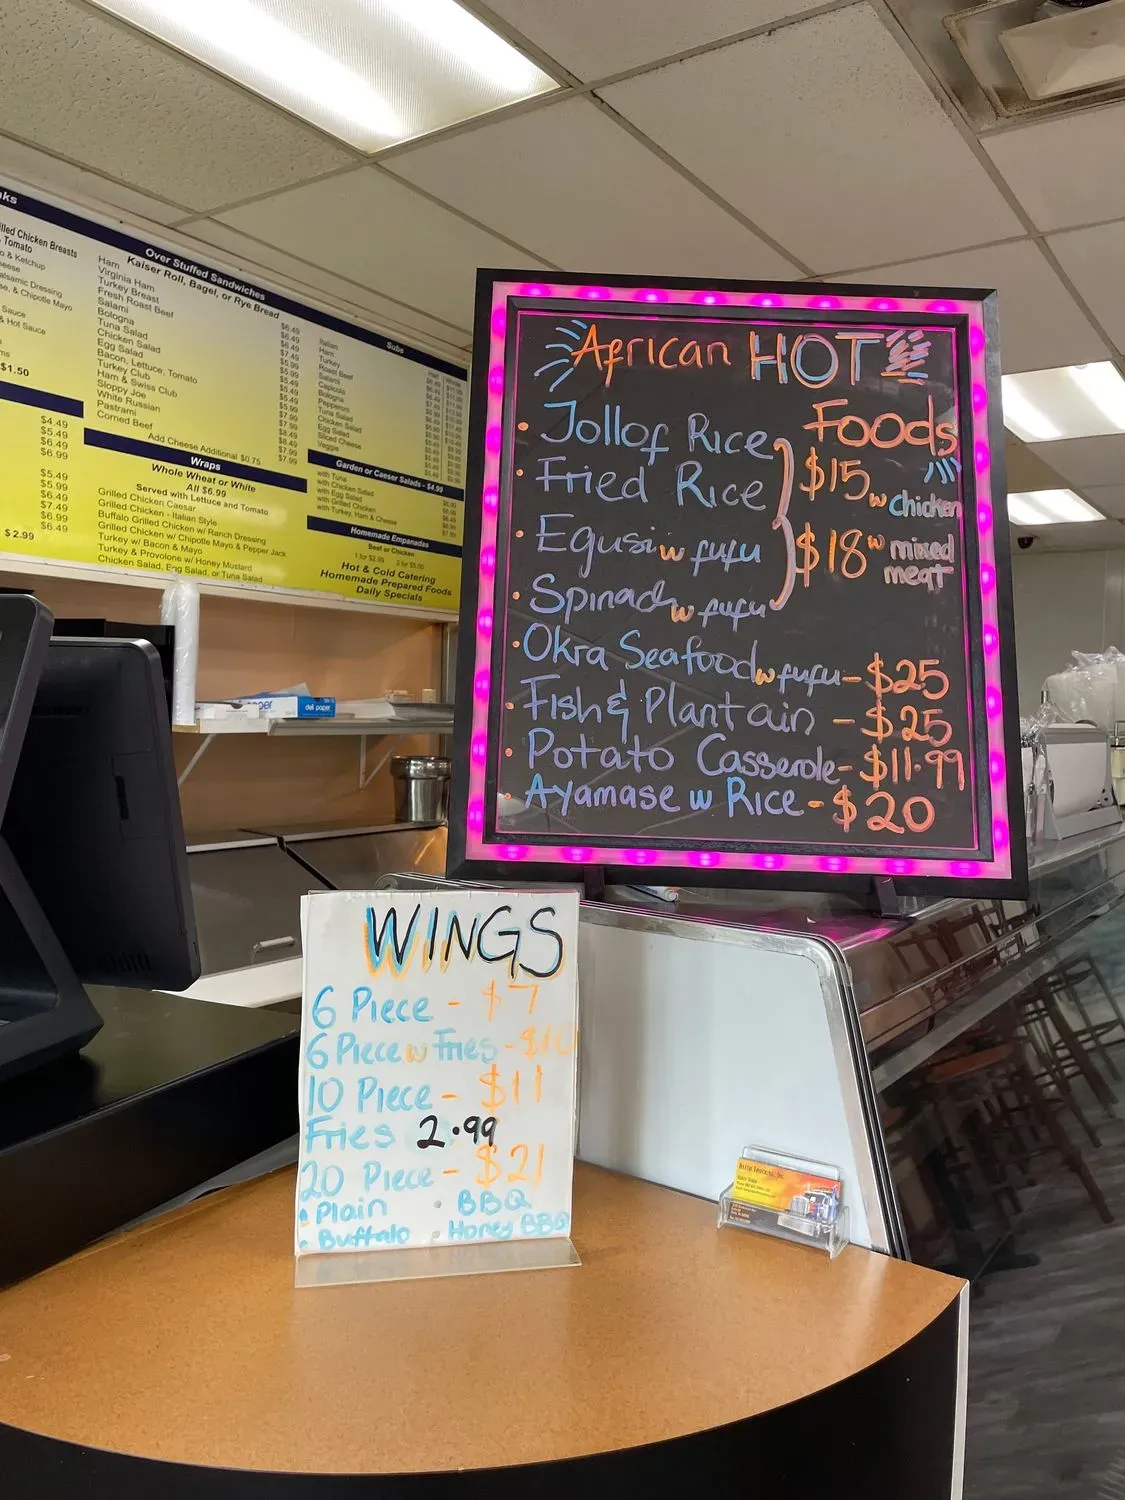 Over Stuffed Sandwiches
Kaiser Roll, Bagel, or Rye Bread
Ham
Virginia Ham
Turkey Breast
Fresh Roast Beef
Salami
Bologna
Tuna Salad
Chicken Salad
Egg Salad
Bacon, Lettuce, Tomato
Turkey Club
Ham & Swiss Club
Sloppy Joe
White Russian
Pastrami
Corned Beef
Add Cheese Additional $0.75
Wraps
Whole Wheat or White
All $6.99
Served with Lettuce and Tomato
Grilled Chicken Caesar
Grilled Chicken - Italian Style
Buffalo Grilled Chicken w/ Ranch Dressing
Grilled Chicken w/ Chipotle Mayo & Pepper Jack
Turkey w/ Bacon & Mayo
Turkey & Provolone w/ Honey Mustard
Chicken Salad, Egg Salad, or Tuna Salad
Subs
Italian
Ham
Turkey
Roast Beef
Salami
Capicola
Bologna
Pepperoni
Tuna Salad
Chicken Salad
Egg Salad
Sliced Cheese
Veggie
Garden or Caeser Salads - $4.99
with Tuna
with Chicken Salad
with Egg Salad
with Grilled Chicken
with Turkey, Ham & Cheese
Homemade Empanadas
Beef or Chicken
1 for $2.99 2 for $5.00
Hot & Cold Catering
Homemade Prepared Foods
Daily Specials
illed Chicken Breasts
Tomato
o & Ketchup
alsamic Dressing
se, & Chipotle Mayo
Sauce
& Hot Sauce
$1.50
$4.49
$5.49
$6.49
$6.99
$5.49
$5.99
$6.49
$7.49
$6.99
$6.49
$2.99
African HOT
Foods
• Jollof Rice
• Fried Rice
$15 w chicken
• Egusi w fufu
$18 w mixed meat
• Spinach w fufu
• Okra Seafood w fufu - $25
• Fish & Plantain - $25
• Potato Casserole - $11.99
• Ayamase w Rice - $20
deli paper
WINGS
6 Piece - $7
6 Piece w Fries - $10
10 Piece - $11
Fries 2.99
20 Piece - $21
• Plain • BBQ
• Buffalo • Honey BBQ